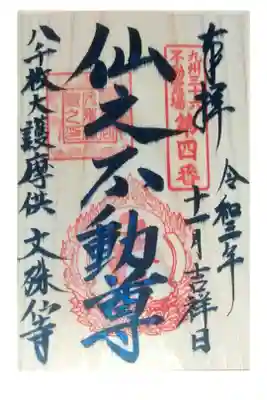 奉拝
令和三年
十一月吉祥日
九州三十六
不動霊場
第四番
仙之不動尊
八千枚大護摩供 文殊仙寺